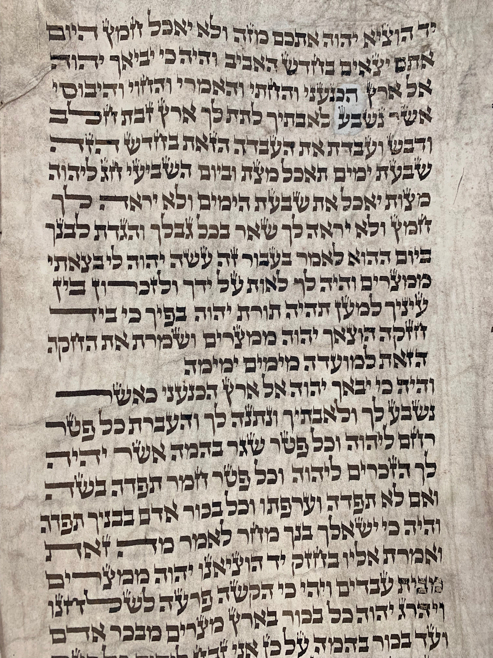 יד הוציא יהוה אתכם מזה ולא יאכל חמץ היום
אתם יצאים בחדש האביב והיה כי יביאך יהוה
אל ארץ הכנעני והחתי והאמרי והחוי והיבוסי
אשר נשבע לאבתיך לתת לך ארץ זבת חלב
ודבש ועבדת את העבדה הזאת בחדש הזה
שבעת ימים תאכל מצת וביום השביעי חג ליהוה
מצות יאכל את שבעת הימים ולא יראה לך
חמץ ולא יראה לך שאר בכל גבלך והגדת לבנך
ביום ההוא לאמר בעבור זה עשה יהוה לי בצאתי
ממצרים והיה לך לאות על ידך ולזכרון בין
עיניך למען תהיה תורת יהוה בפיך כי ביד
חזקה הוצאך יהוה ממצרים ושמרת את החקה
הזאת למועדה מימים ימימה
והיה כי יבאך יהוה אל ארץ הכנעני כאשר
נשבע לך ולאבתיך ונתנה לך והעברת כל פטר
רחם ליהוה וכל פטר שגר בהמה אשר יהיה
לך הזכרים ליהוה וכל פטר חמר תפדה בשה
ואם לא תפדה וערפתו וכל בכור אדם בבניך תפדה
והיה כי ישאלך בנך מחר לאמר מה זאת
ואמרת אליו בחזק יד הוציאנו יהוה ממצרים
מבית עבדים ויהי כי הקשה פרעה לשלחנו
ויהרג יהוה כל בכור בארץ מצרים מבכר אדם
ועד בכור בהמה על כן אני זבח ליהוה כל פטר